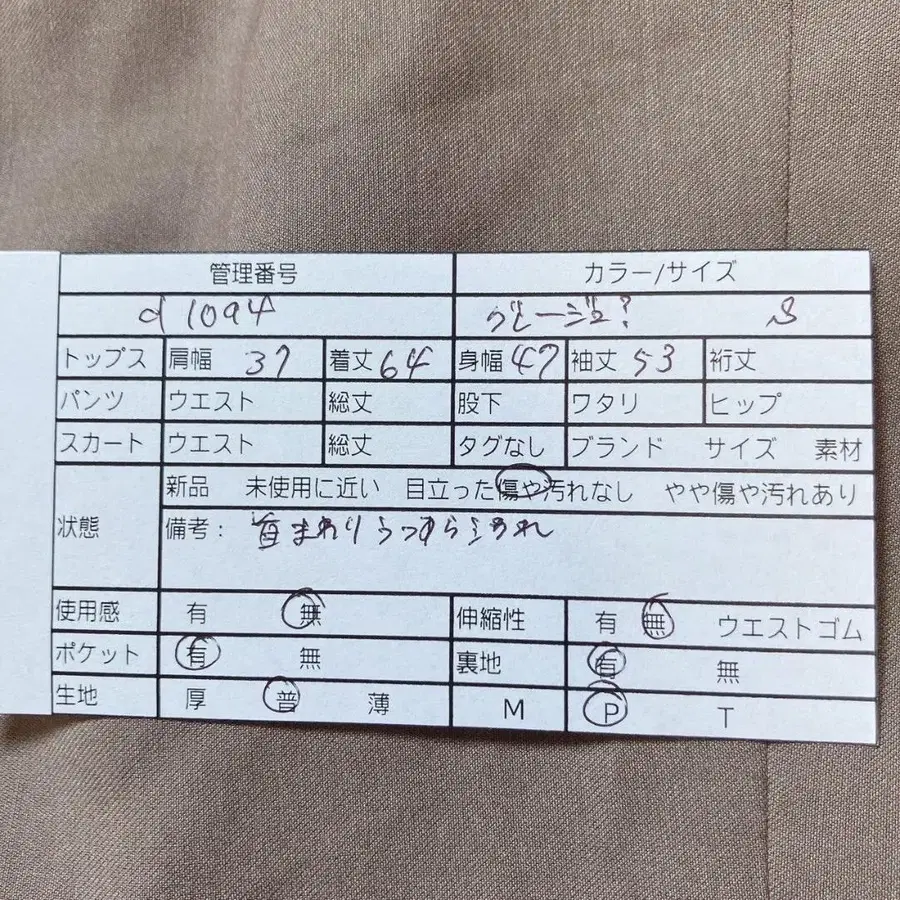 管理番号 カラー/サイズ
d 1094 ベージュ? S
トップス 肩幅 37 着丈 64 身幅 47 袖丈 53 裄丈
パンツ ウエスト 総丈 股下 ワタリ ヒップ
スカート ウエスト 総丈 タグなし ブランド サイズ 素材
新品 未使用に近い 目立った傷や汚れなし やや傷や汚れあり
状態 備考: 首まわりうっすらよごれ
使用感 有 無 伸縮性 有 無 ウエストゴム
ポケット 有 無 裏地 有 無
生地 厚 普 薄 M P T